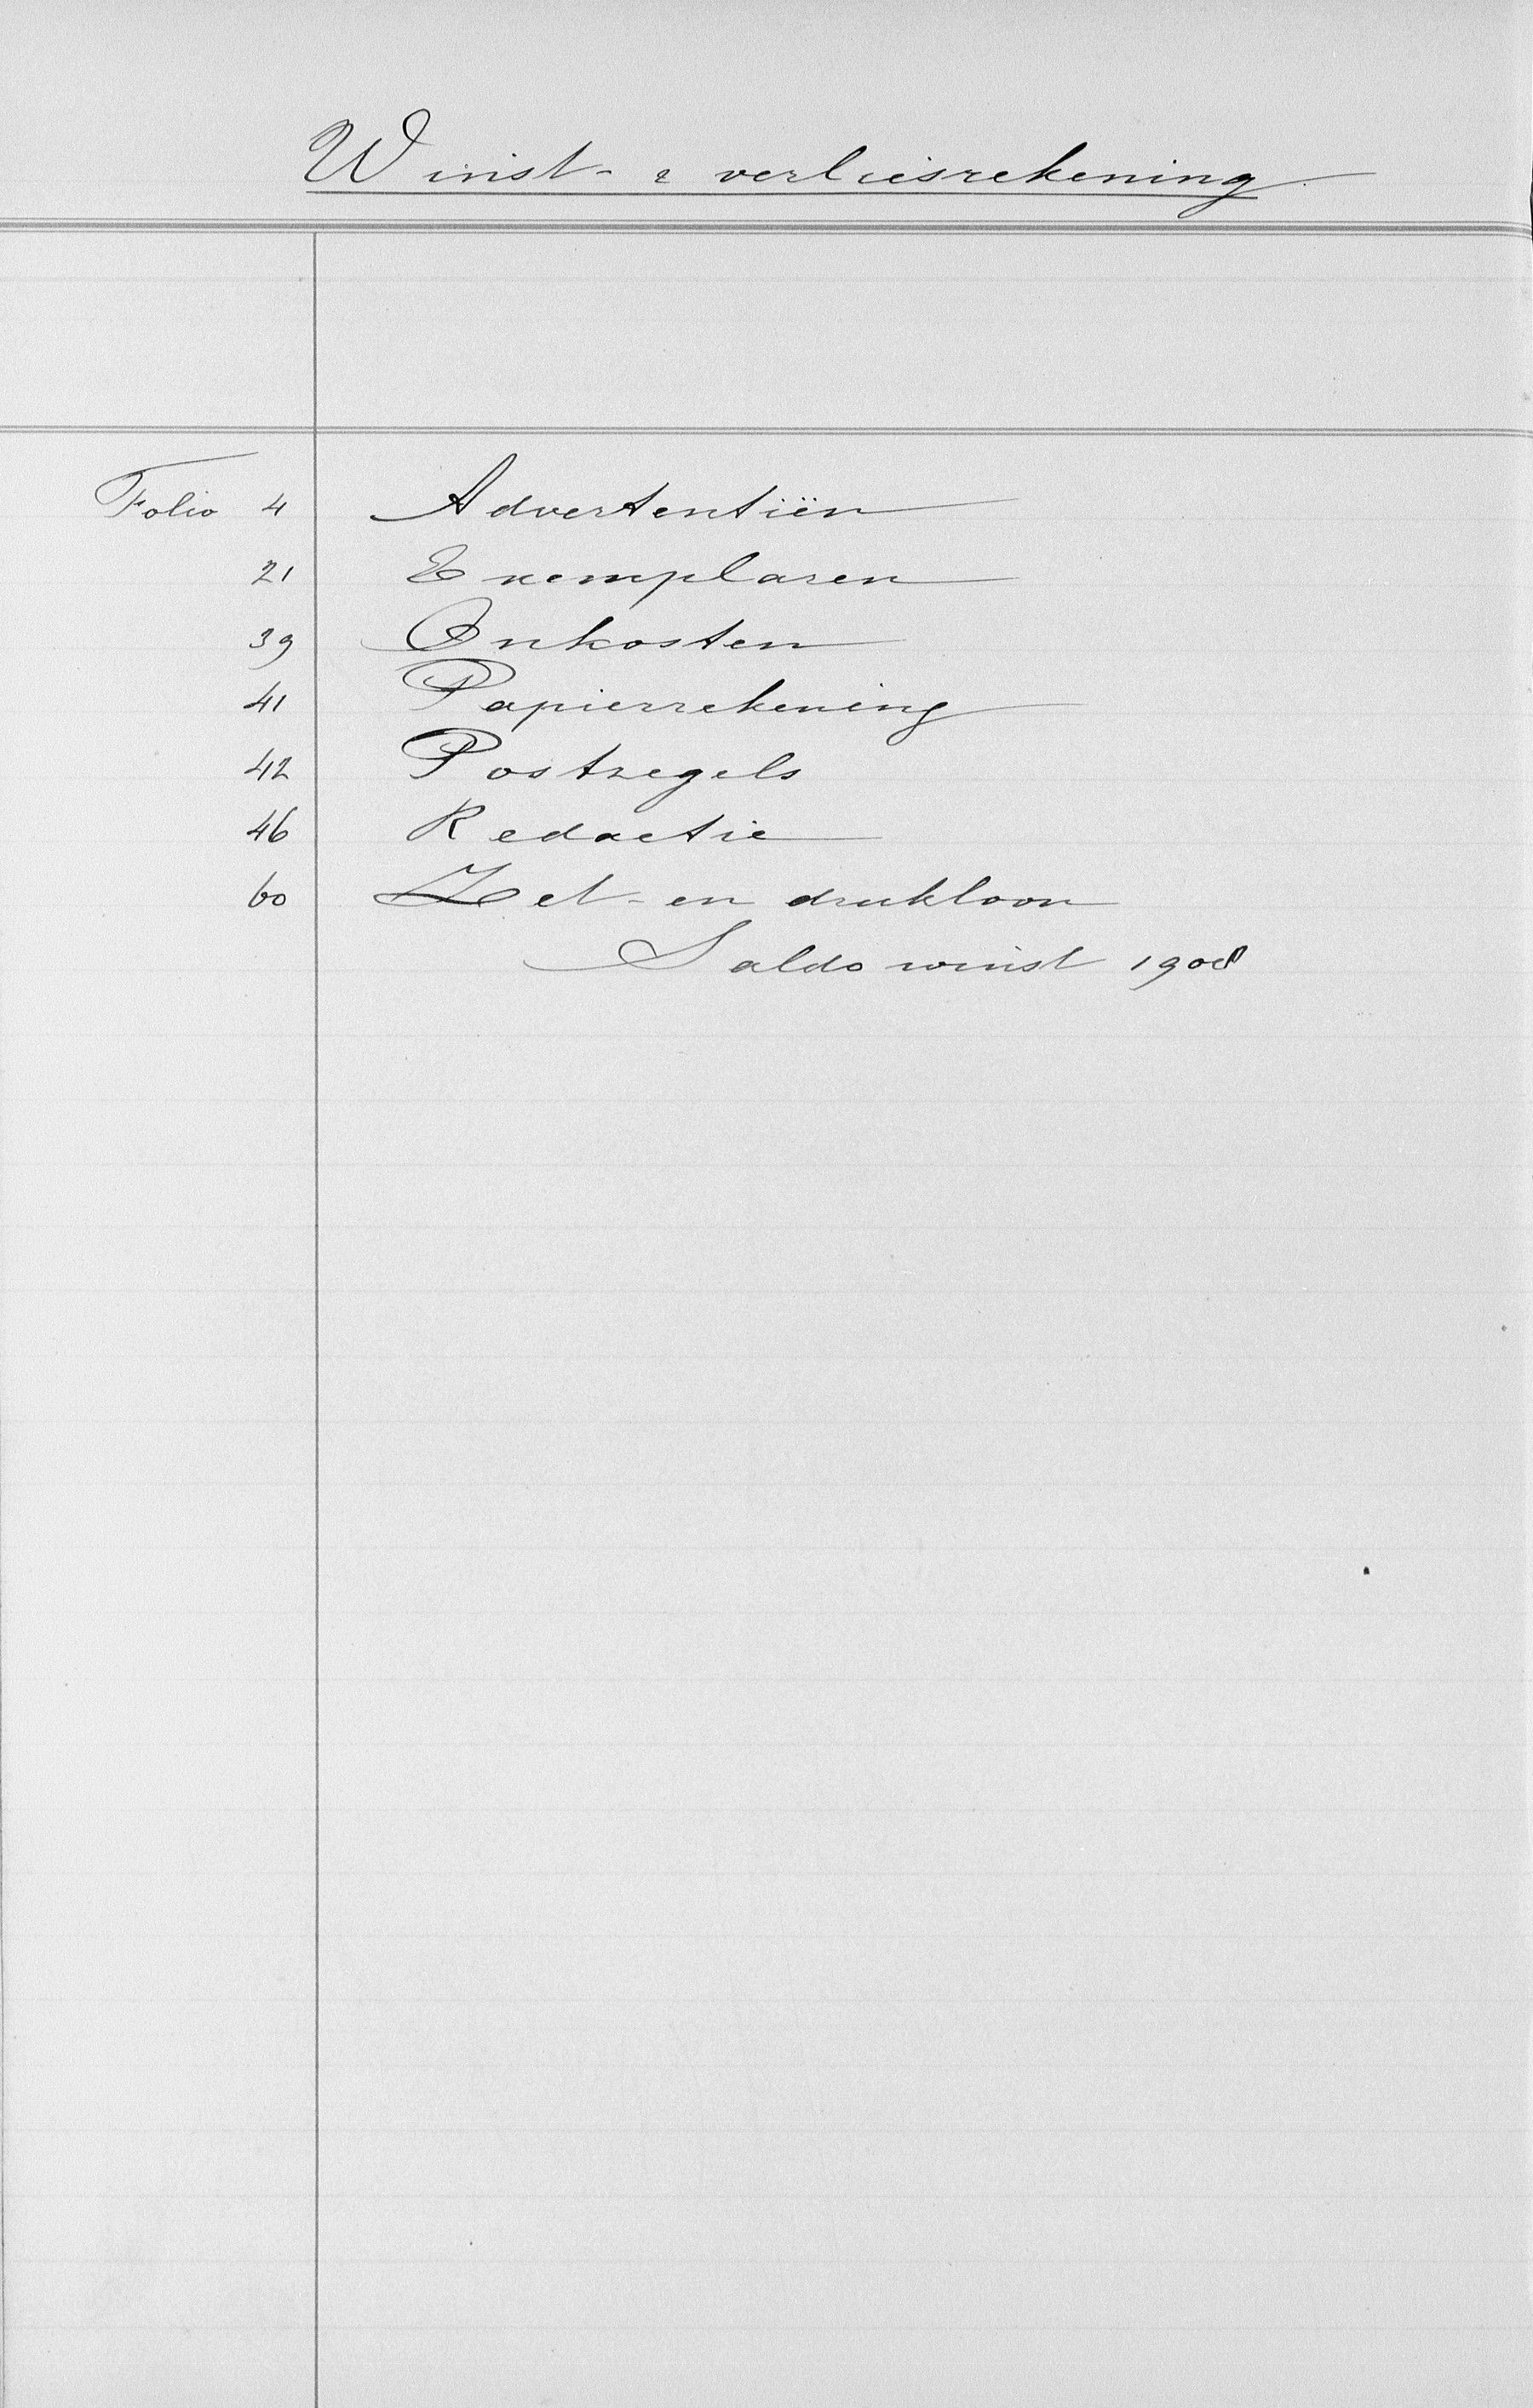 Winst- & verliesrekening
Folio 4 Advertentiën
21 Exemplaren
39 Onkosten
41 Papierrekening
42 Postzegels
46 Redactie
60 Zet- en drukloon
Saldo winst 1908